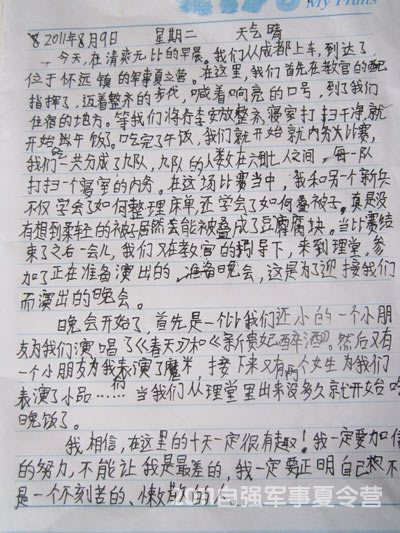 My Plans
2011年8月9日 星期二 天气晴
今天,在清爽无比的早晨。我们从成都上车,到达了,
位于怀远镇的军事夏令营。在这里,我们首先在教官的
指挥了,迈着整齐的步伐,喊着响亮的口号,到了我们
住宿的地方。等我们将行李安放整齐,寝室打扫干净,就
开始吃午饭了。吃完了午饭,我们就开始就内务比赛,
我们一共分成了九队,九队的人数在六到七人之间,每一队
打扫一个寝室的内务。在这场比赛当中,我和另一个新兵
不仅学会了如何整理床单,还学会了如何叠被子。真是没
有想到柔轻的被子居然能被叠成了豆腐块。当比赛结
束了之后一会儿,我们又在教官的领导下,来到理堂,参
加了正在准备演出的,准备晚会,这是为了迎接我们
而演出的晚会。
晚会开始了,首先是一个比我们还小的一个小朋
友为我们演唱了《春天刃和《新贵妃醉酒》。然后又有
一个小朋友为我表演了魔术,接下来又有两个女生为我们
表演了小品……们 当我们从理堂里出来没多久就开始吃
晚饭了。
我相信,在这里的十天一定很有趣!我一定要加倍
的努力,不能让我是最差的,我一定要正明自己不
是一个不刻苦的、懒散的人。
2011自强军事夏令营